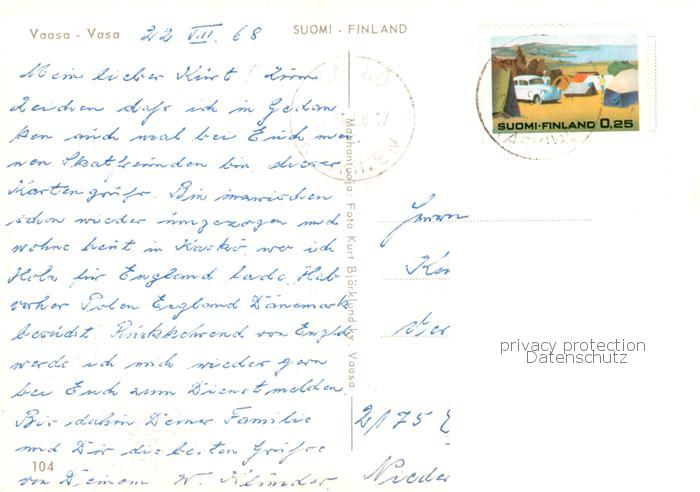 Vaasa - Vasa 22 VII. 68 SUOMI - FINLAND
Mein lieber Kurt! Zum
Zeichen daß ich in Gedan
ken auch mal bei Euch mei
nen Skatfreunden bin, dieser
Kartengruß. Bin inzwischen
schon wieder umgezogen und
wohne heut in Kaskö, wo ich
Holz für England lade. Hab
vorher Polen England Dänemark
besucht. Rückkehrend von Engld
werde ich mich wieder gern
bei Euch zum Dienst melden.
Bis dahin Deiner Familie
und Dir die besten Grüße
von Deinem W. Klünder
104
Mechanituoja Foto Kurt Björklund ky. Vaasa
SUOMI-FINLAND 0,25
Herrn
2175
Nieder
privacy protection
Datenschutz